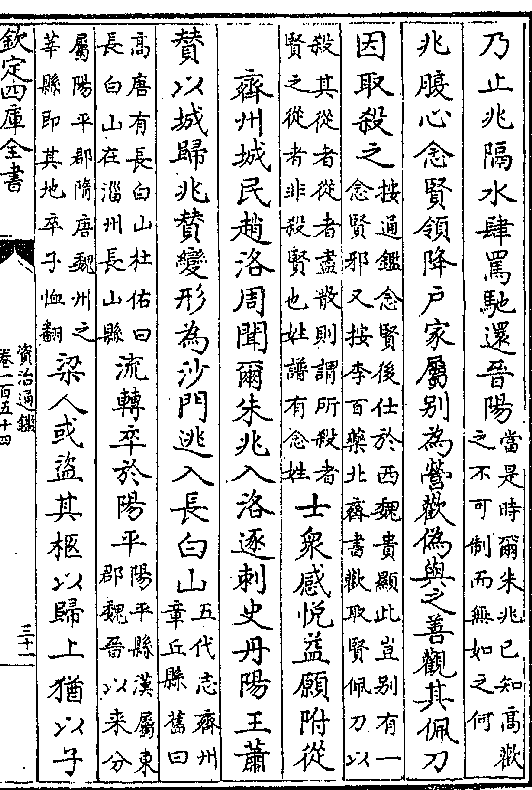 乃止兆隔水肆罵馳還晉陽當是時爾朱兆已知高歡之不可制而無如之何
兆腹心念賢領降戶家屬别為營歡偽與之善觀其佩刀
因取殺之按通鑑念賢後仕於西魏貴顯此豈别有一念賢邪又按李百藥北齊書歡取賢佩刀以
殺其從者從者盡散則謂所殺者賢之從者非殺賢也姓譜有念姓士衆感悦益願附從
齊州城民趙洛周聞爾朱兆入洛逐刺史丹陽王蕭
賛以城歸兆賛變形為沙門逃入長白山五代志齊州章丘縣舊曰
高唐有長白山杜佑曰長白山在淄州長山縣流轉卒於陽平陽平縣漢屬東郡魏晉以来分
屬陽平郡隋唐魏州之莘縣即其地卒子恤翻梁人或盜其柩以歸上猶以子
欽定四庫全書
資治通鑑
卷一百五十四
三十一